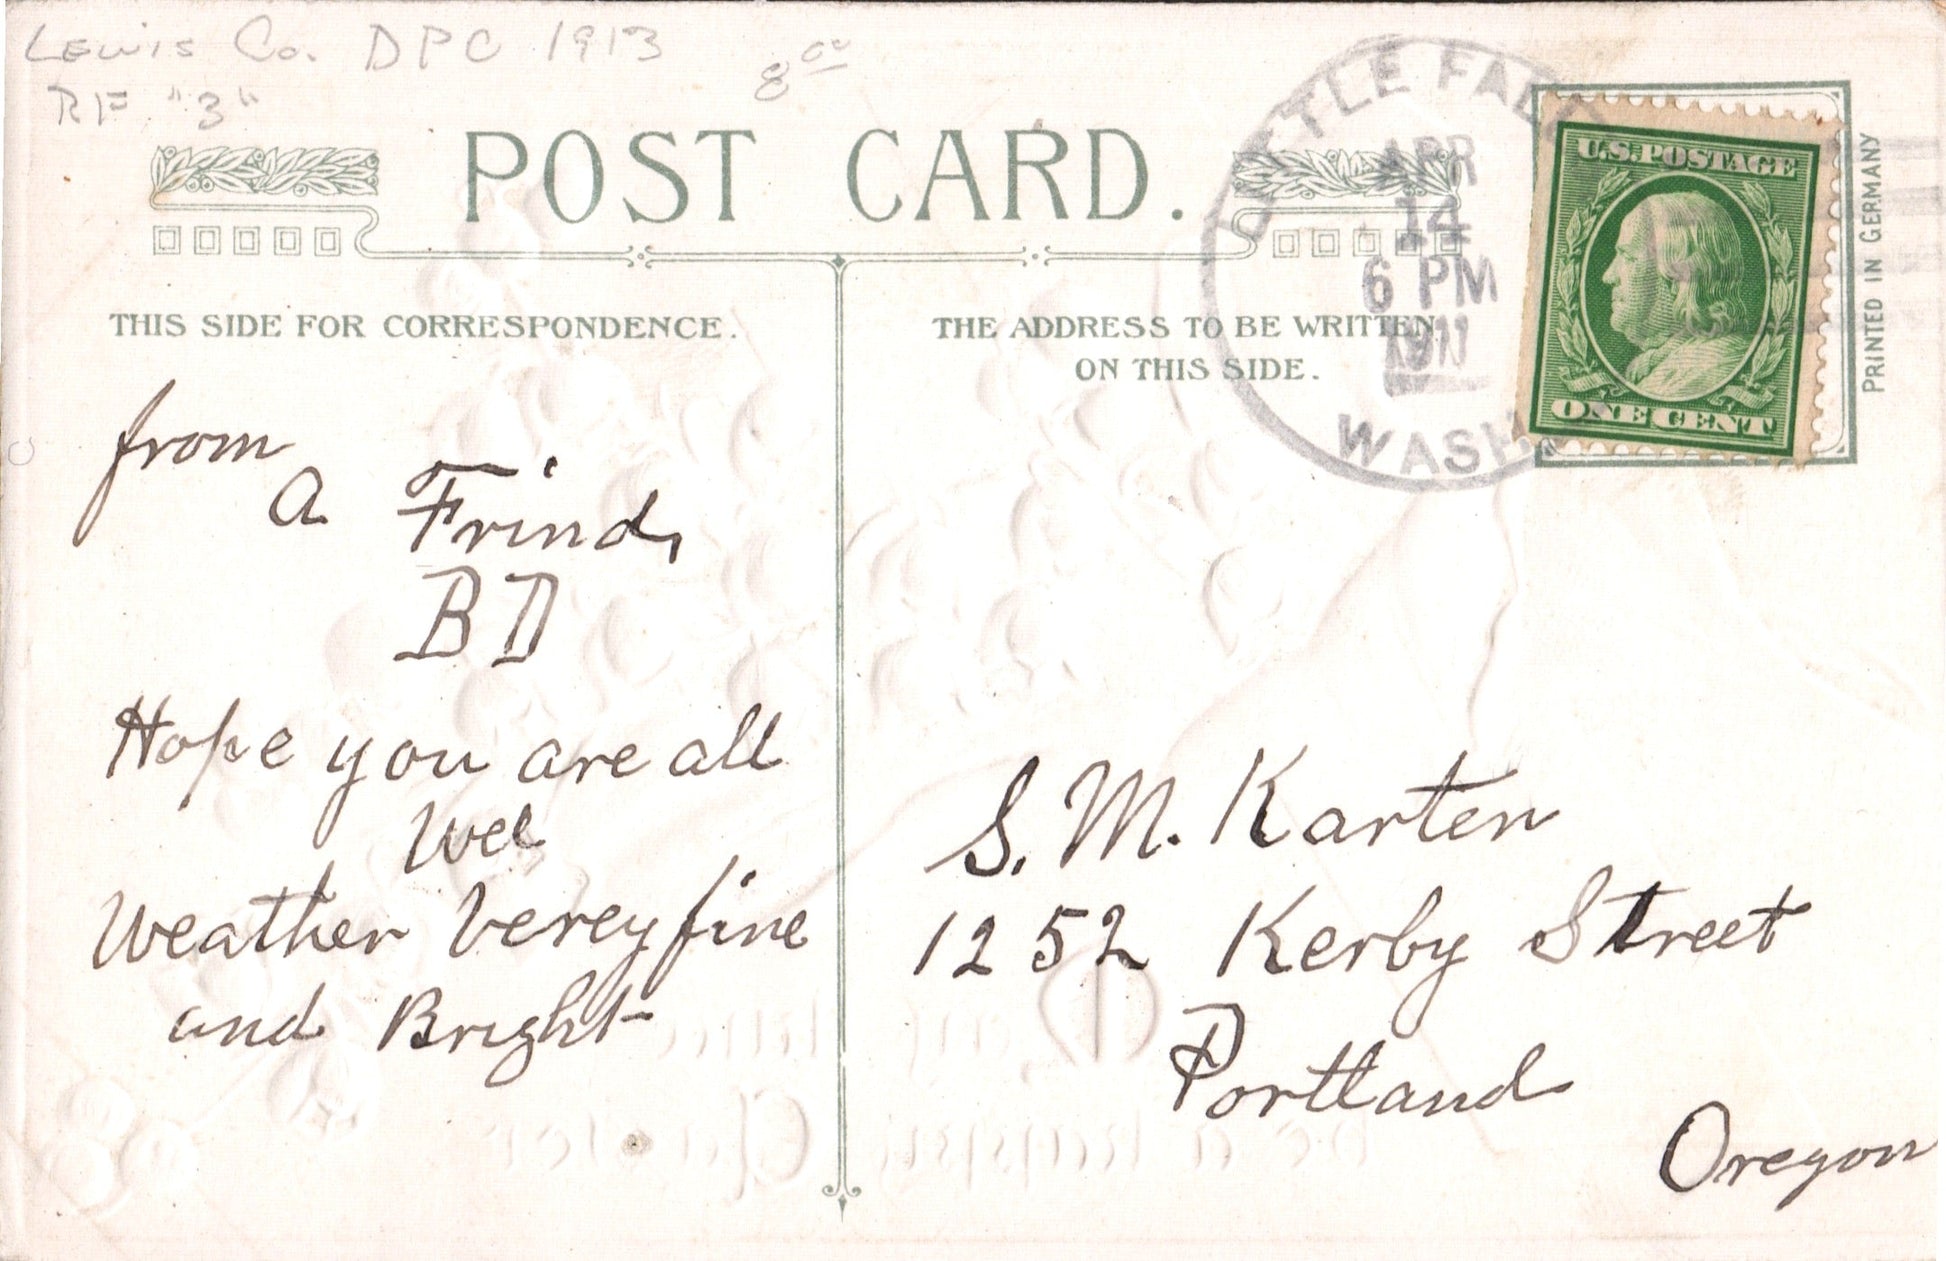 Lewis Co. DPC 1913
RF "3"
8 00
POST CARD.
THIS SIDE FOR CORRESPONDENCE.
THE ADDRESS TO BE WRITTEN
ON THIS SIDE.
LITTLE FALLS
APR
14
6 PM
1911
WASH.
U.S. POSTAGE
ONE CENT
PRINTED IN GERMANY
from
a Frind,
BD
Hope you are all
Wel
Weather verey fine
and Bright
S. M. Karten
1252 Kerby Street
Portland
Oregon